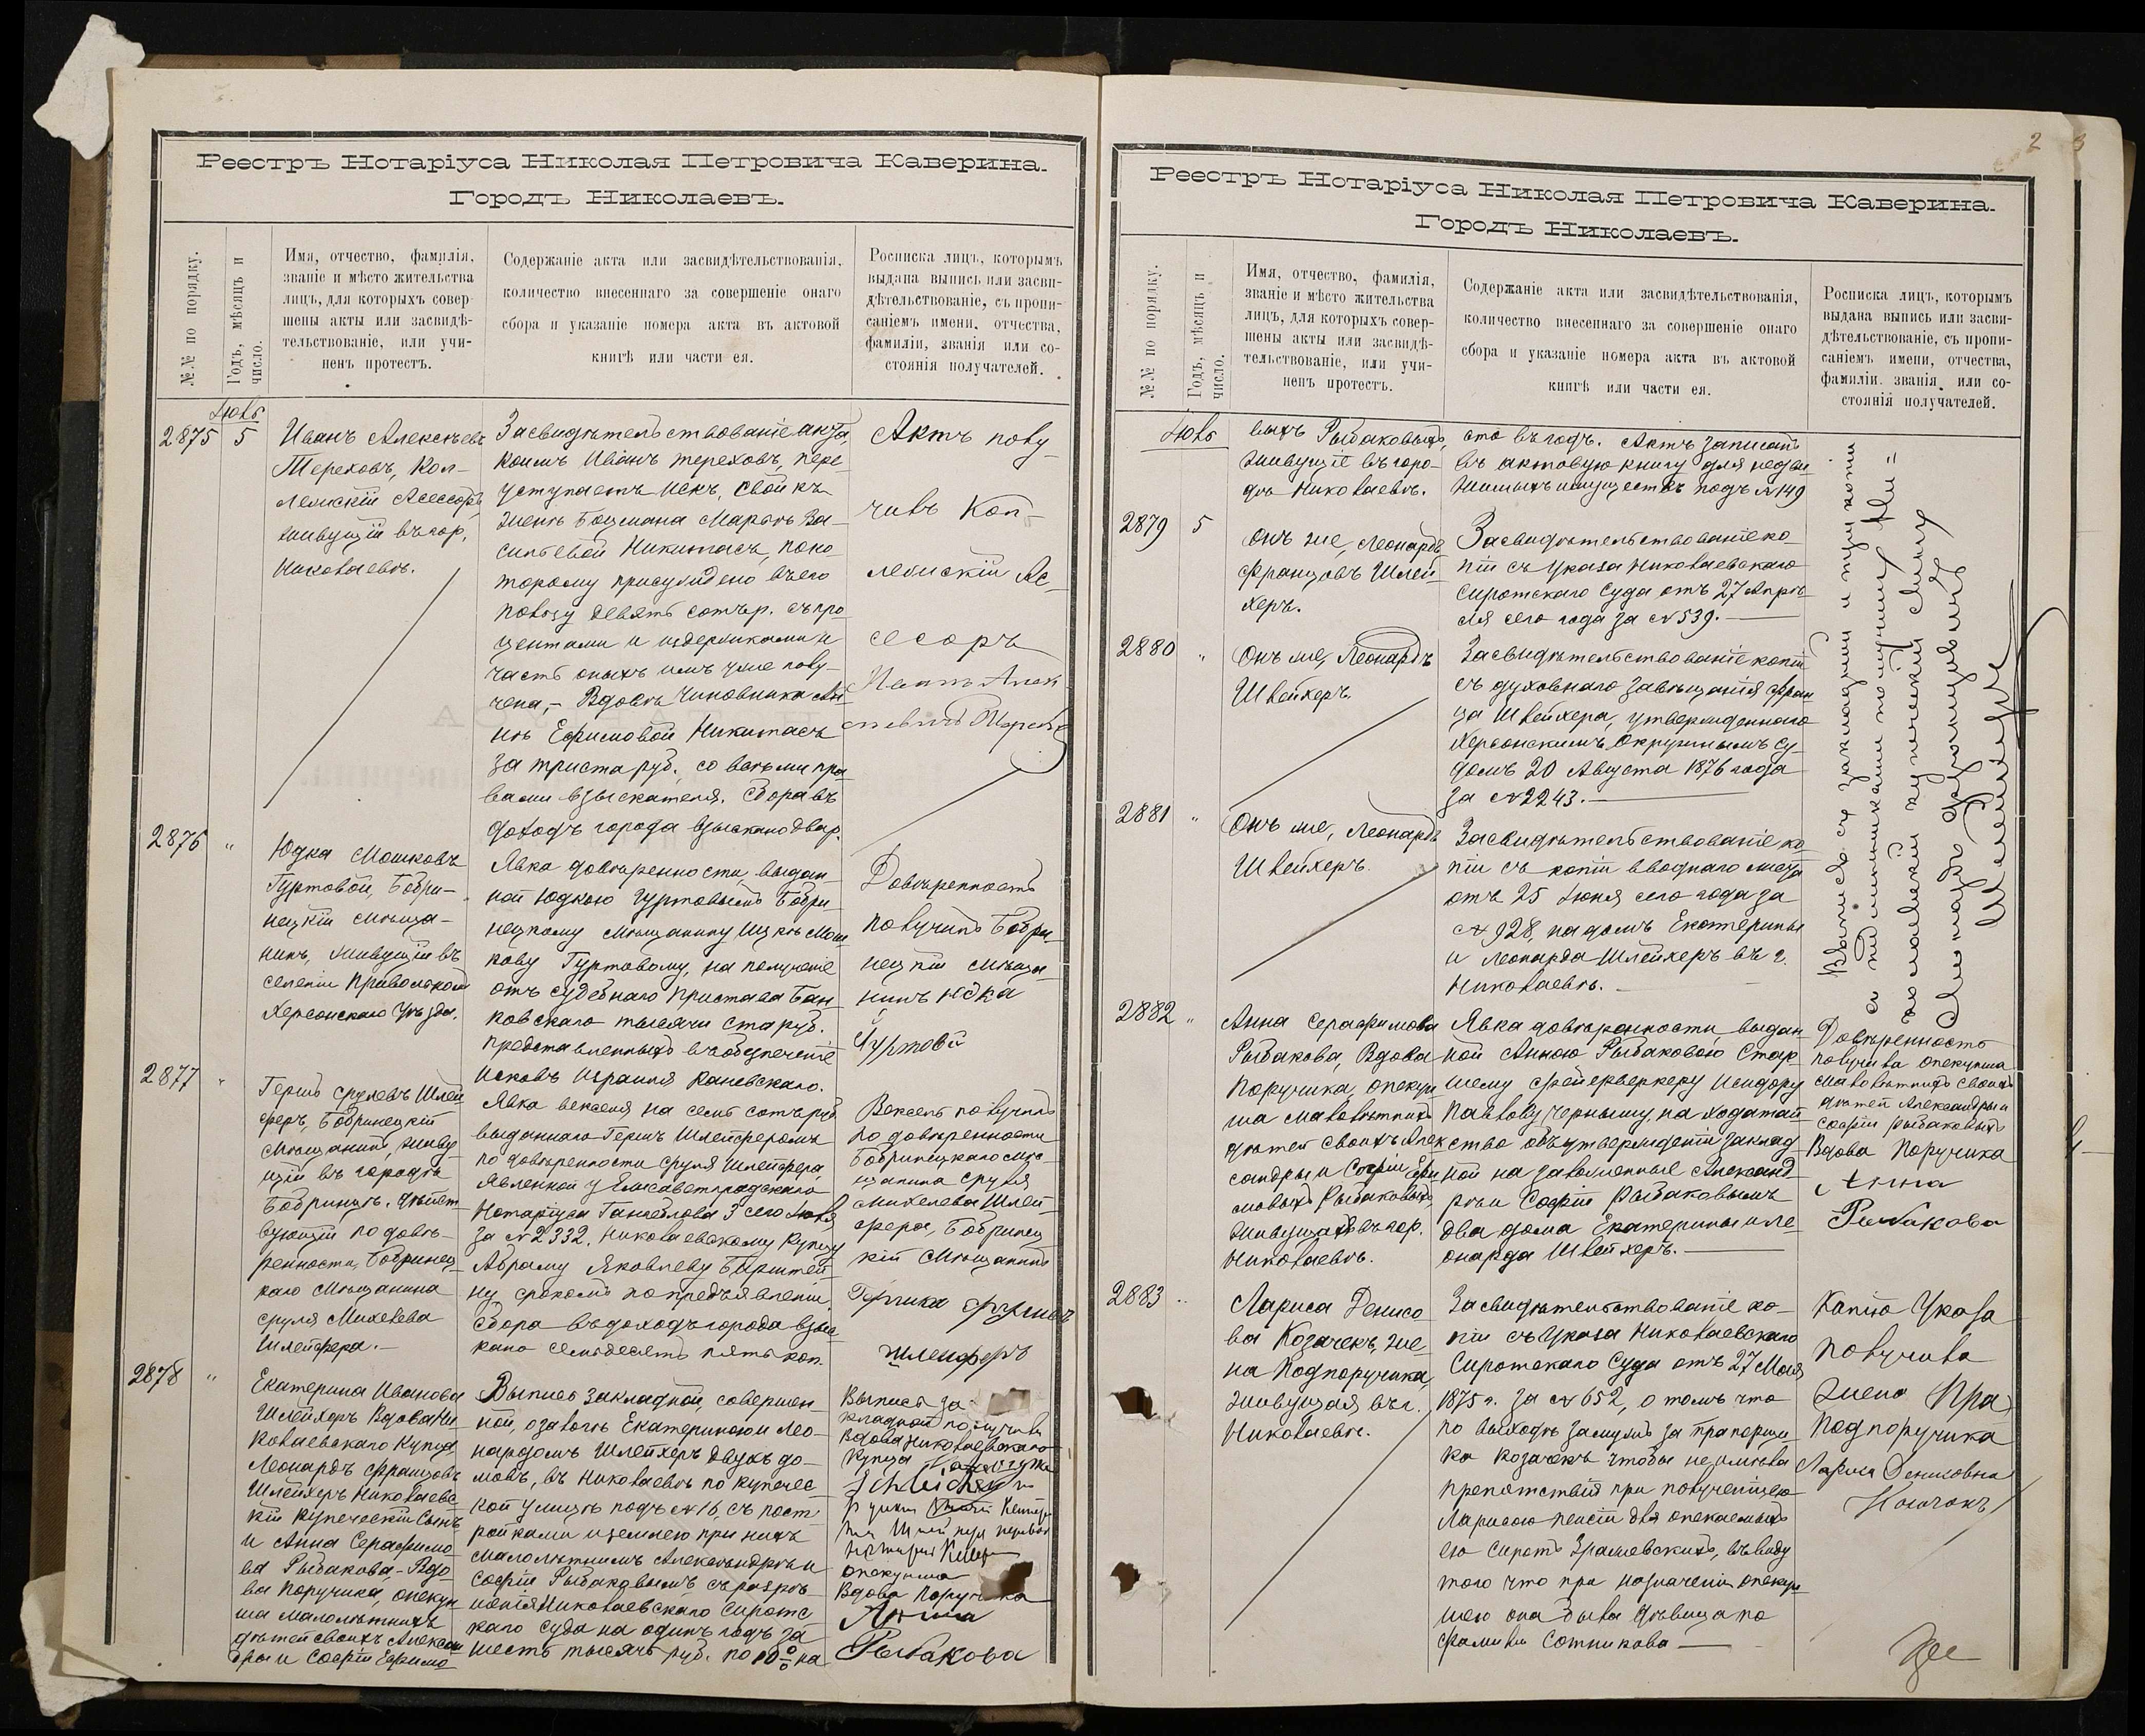 Реестръ Нотаріуса Николая Петровича Каверина.
Городъ Николаевъ.
№№ по порядку.
Годъ, мѣсяцъ и
число.
Имя, отчество, фамилія,
званіе и мѣсто жительства
лицъ, для которыхъ совер-
шены акты или засвидѣ-
тельствованіе, или учи-
ненъ протестъ.
Содержаніе акта или засвидѣтельствованія,
количество внесеннаго за совершеніе онаго
сбора и указаніе номера акта въ актовой
книгѣ или части ея.
Росписка лицъ, которымъ
выдана выпись или засви-
дѣтельствованіе, съ пропи-
саніемъ имени, отчества,
фамиліи, званія или со-
стоянія получателей.
2875
5
Иванъ Алексѣевъ
Тереховъ, Кол-
лежскій Асессоръ,
живущій въ гор.
Николаевѣ.
Засвидѣтельствованіе акта,
коимъ Иванъ Тереховъ, пере
уступаетъ искъ, свой къ
женѣ Боцмана Марьѣ Ва-
сильевой Никитасъ, по ко
торому присуждено въ его
пользу девять сотъ р. съ про
центами и издержками и
часть оныхъ имъ уже полу-
чена, - Вдовѣ Чиновника Ан
нѣ Ефимовой Никитасъ
за триста руб., со всѣми пра
вами взыскателя. Сбора въ
доходъ города взыскано два р.
Актъ полу
чилъ Кол-
лежскій Ас-
сесоръ
2876
"
Юдка Мошковъ
Гуртовой, Бобри-
нецкій мѣща-
нинъ, живущій въ
селеніи Привольномъ
Херсонскаго уѣзда.
Явка довѣренности, выдан
ной Юдкою Гуртовымъ Бобри
нецкому мѣщанину Ицкѣ Мош
кову Гуртовому, на полученіе
отъ судебнаго пристава Бан
ковскаго тысячи ста руб.
представленныхъ въ обезпеченіе
исковъ Израиля Каневскаго.
Довѣренность
получилъ Бобри
нецкій мѣща
нинъ Юдка
Гуртовой
2877
"
Гершъ Срулевъ Шлей
феръ, Бобринецкій
мѣщанинъ, живу
щій въ городѣ
Бобринцѣ, дѣйст
вующій по довѣ-
ренности, Бобринец
каго мѣщанина
Сруля Михелева
Шлейфера.-
Явка векселя на семь сотъ руб
выданнаго Гершъ Шлейферомъ
по довѣренности Сруля Шлейфера,
явленной у Елисаветградскаго
Нотаріуса Ганчеблова 3 сего Іюля
за № 2332, Николаевскому купцу
Абраму Яковлеву Бирштей
ну срокомъ по предъявленіи,
Сбора въ доходъ города взыс
кано семьдесятъ пять коп.
Вексель получилъ
по довѣренности
Бобринецкаго мѣ-
щанина Сруля
Михелева Шлей
фера, Бобринец
кій мѣщанинъ
Гершка Срулевъ
Шлейферъ
2878
"
Екатерина Иванова
Шлейхеръ Вдова Ни
колаевскаго Купца,
Леонардъ Францовъ
Шлейхеръ Николаевс
кій Купеческій Сынъ,
и Анна Серафимо
ва Рыбакова, - Вдо
ва Поручика, опекун
ша малолѣтнихъ
дѣтей своихъ Алексан
дры и Софіи Ефимо
Выпись закладной, совершен
ной, о залогѣ Екатериною и Лео-
нардомъ Шлейхеръ двухъ до-
мовъ, въ Николаевѣ по купечес
кой улицѣ подъ № 16, съ пост
ройками и землею при нихъ
малолѣтнимъ Александрѣ и
Софіи Рыбаковымъ, съ разрѣ
шенія Николаевскаго Сиротс
каго Суда на одинъ годъ за
шесть тысячъ руб. по 10% на
Выпись за-
кладной получили
Вдова Николаевскаго
Купца
Schleicher
опекунша
Вдова Поручика
Анна
Рыбакова
2 3
Реестръ Нотаріуса Николая Петровича Каверина.
Городъ Николаевъ.
№№ по порядку.
Годъ, мѣсяцъ и
число.
Имя, отчество, фамилія,
званіе и мѣсто жительства
лицъ, для которыхъ совер-
шены акты или засвидѣ-
тельствованіе, или учи-
ненъ протестъ.
Содержаніе акта или засвидѣтельствованія,
количество внесеннаго за совершеніе онаго
сбора и указаніе номера акта въ актовой
книгѣ или части ея.
Росписка лицъ, которымъ
выдана выпись или засви-
дѣтельствованіе, съ пропи-
саніемъ имени, отчества,
фамиліи, званія или со-
стоянія получателей.
выхъ Рыбаковыхъ,
живущіе въ горо-
дѣ Николаевѣ.
сто въ годъ. Актъ записанъ
въ актовую книгу для недви
жимыхъ имуществъ подъ № 149
2879
5
Онъ же, Леонардъ
Францовъ Шлей
херъ.
Засвидѣтельствованіе ко-
піи съ указа Николаевскаго
Сиротскаго Суда отъ 27 Апрѣ
ля сего года за № 539.
2880
"
Онъ же, Леонардъ
Шлейхеръ
Засвидѣтельствованіе копіи
съ духовнаго завѣщанія Фран
ца Шлейхера, утвержденнаго
Херсонскимъ Окружнымъ Су
домъ 20 Августа 1876 года
за № 2243.
2881
"
Онъ же, Леонардъ
Шлейхеръ
Засвидѣтельствованіе ко
піи съ копіи вводнаго листа
отъ 25 Іюня сего года за
№ 928, на домъ Екатерины
и Леонарда Шлейхеръ въ г.
Николаевѣ.
2882
"
Анна Серафимова
Рыбакова, Вдова
Поручика, опекун
ша малолѣтнихъ
дѣтей своихъ Алек
сандры и Софіи Ефи
мовыхъ Рыбаковыхъ,
живущая въ гор.
Николаевѣ.
Явка довѣренности, выдан
ной Анною Рыбаковою Стар-
шему фейерверкеру Исидору
Павлову Чернышу, на ходатай
ство объ утвержденіи заклад
ной на заложенные Александ
рѣ и Софіи Рыбаковымъ
два дома Екатерины и Ле
онарда Шлейхеръ.
Довѣренность
получила опекунша
малолѣтнихъ своихъ
дѣтей Александры и
Софіи Рыбаковыхъ
Вдова Поручика
Анна
Рыбакова
2883
"
Лариса Денисо
ва Козачекъ, же
на Подпоручика,
живущая въ г.
Николаевѣ.
Засвидѣтельствованіе ко-
піи съ Указа Николаевскаго
Сиротскаго Суда отъ 27 Мая
1875 г. за № 652, о томъ что
по выходѣ замужъ за прапорщи
ка Козачекъ чтобы не имѣла
препятствій при полученіи ею
Ларисою пенсіи для опекаемыхъ
ею сиротъ Эрашевскихъ, въ виду
того что при назначеніи опекун
шею она была дѣвица по
фамиліи Сотникова
Капію Указа
Получила
жена
Подпоручика
Лариса Денисовна